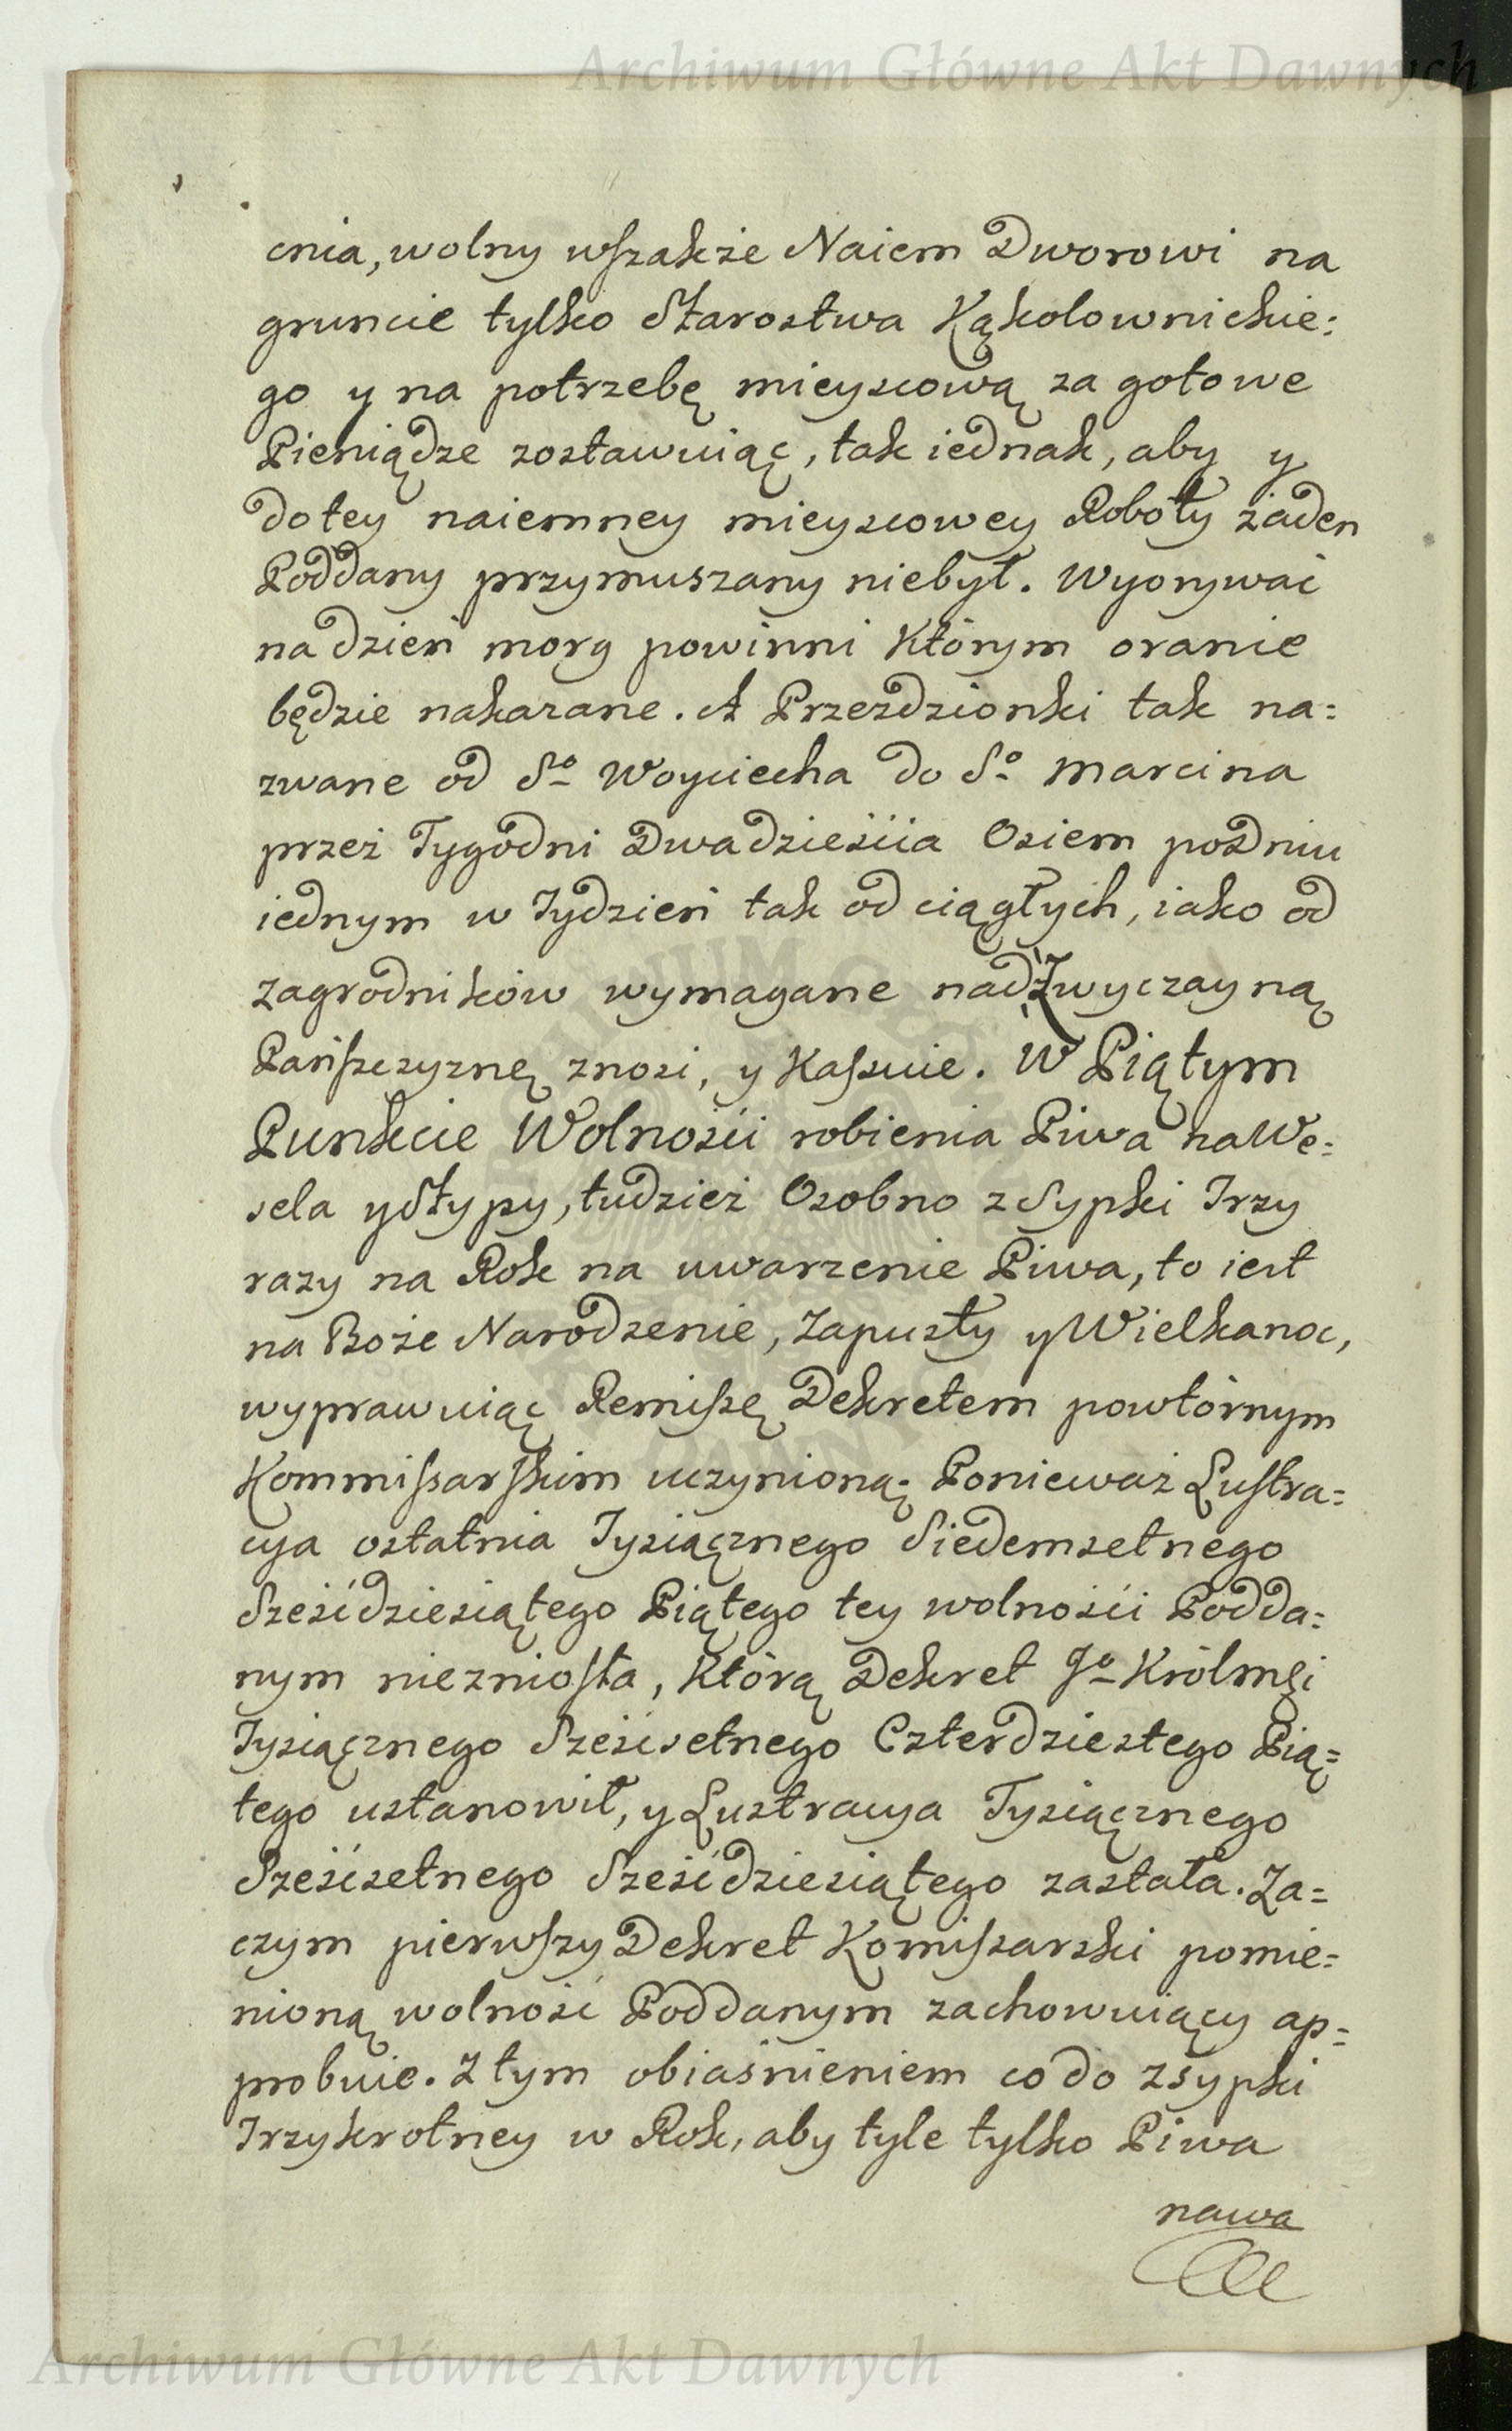 Archiwum Główne Akt Dawnych
cnia, wolny wszakże Naiem Dworowi na
gruncie tylko Starostwa Kąkolownickie:
go y na potrzebę mieyscową za gotowe
Pieniądze zostawuiąc, tak iednak, aby y
do tey naiemney mieyscowey Roboty żaden
Poddany przymuszany niebył. Wyorywać
na dzień morg powinni którym oranie
będzie nakazane. A Przezdzionki tak na:
zwane od So Woyciecha do So Marcina
przez Tygodni Dwadzieścia Osiem po dniu
iednym w Tydzień tak od ciągłych, iako od
zagrodników wymagane nad Zwyczayną
Pańszczyznę znosi, y Kassuie. W Piątym
Punkcie Wolności robienia Piwa na We:
sela y Stypy, tudzież Osobno z Sypki Trzy
razy na Rok na uwarzenie Piwa, to iest
na Boże Narodzenie, Zapusty y Wielkanoc,
wyprawuiąc Remissę Dekretem powtórnym
Kommissarskim uczynioną; Ponieważ Lustra:
cya ostatnia Tysiącznego Siedemsetnego
Sześćdziesiątego Piątego tey wolności Podda:
nym niezniosła, Którą Dekret Jo Królmći
Tysiącznego Sześćsetnego Czterdziestego Pią:
tego ustanowił, y Lustracya Tysiącznego
Sześćsetnego Sześćdziesiątego zastała. Za:
czym pierwszy Dekret Komissarski pomie:
nioną wolność Poddanym zachowuiący ap:
probuie. Z tym obiaśnieniem co do zsypki
Trzykrotney w Rok, aby tyle tylko Piwa
nawa
Archiwum Główne Akt Dawnych